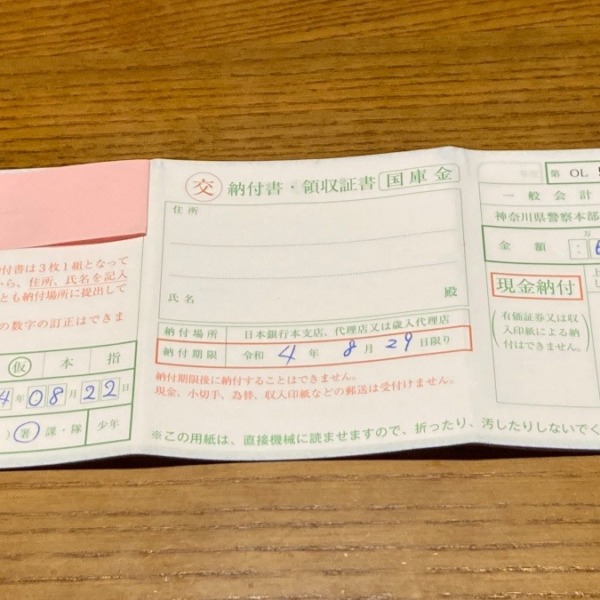 付書は3枚1組となって
から、住所、氏名を記入
とも納付場所に提出して
の数字の訂正はできま
仮 本 指
4年08月22日
)署 課・隊 少年
交 納付書・領収証書 国庫金
住所
氏名 殿
納付場所 日本銀行本支店、代理店又は歳入代理店
納付期限 令和 4年 8月 29日限り
納付期限後に納付することはできません。
現金、小切手、為替、収入印紙などの郵送は受付けません。
※この用紙は、直接機械に読ませますので、折ったり、汚したりしないでく
第 OL
一般会計
神奈川県警察本部
金額 万
現金納付
有価証券又は収
入印紙による納
付はできません。
上
し